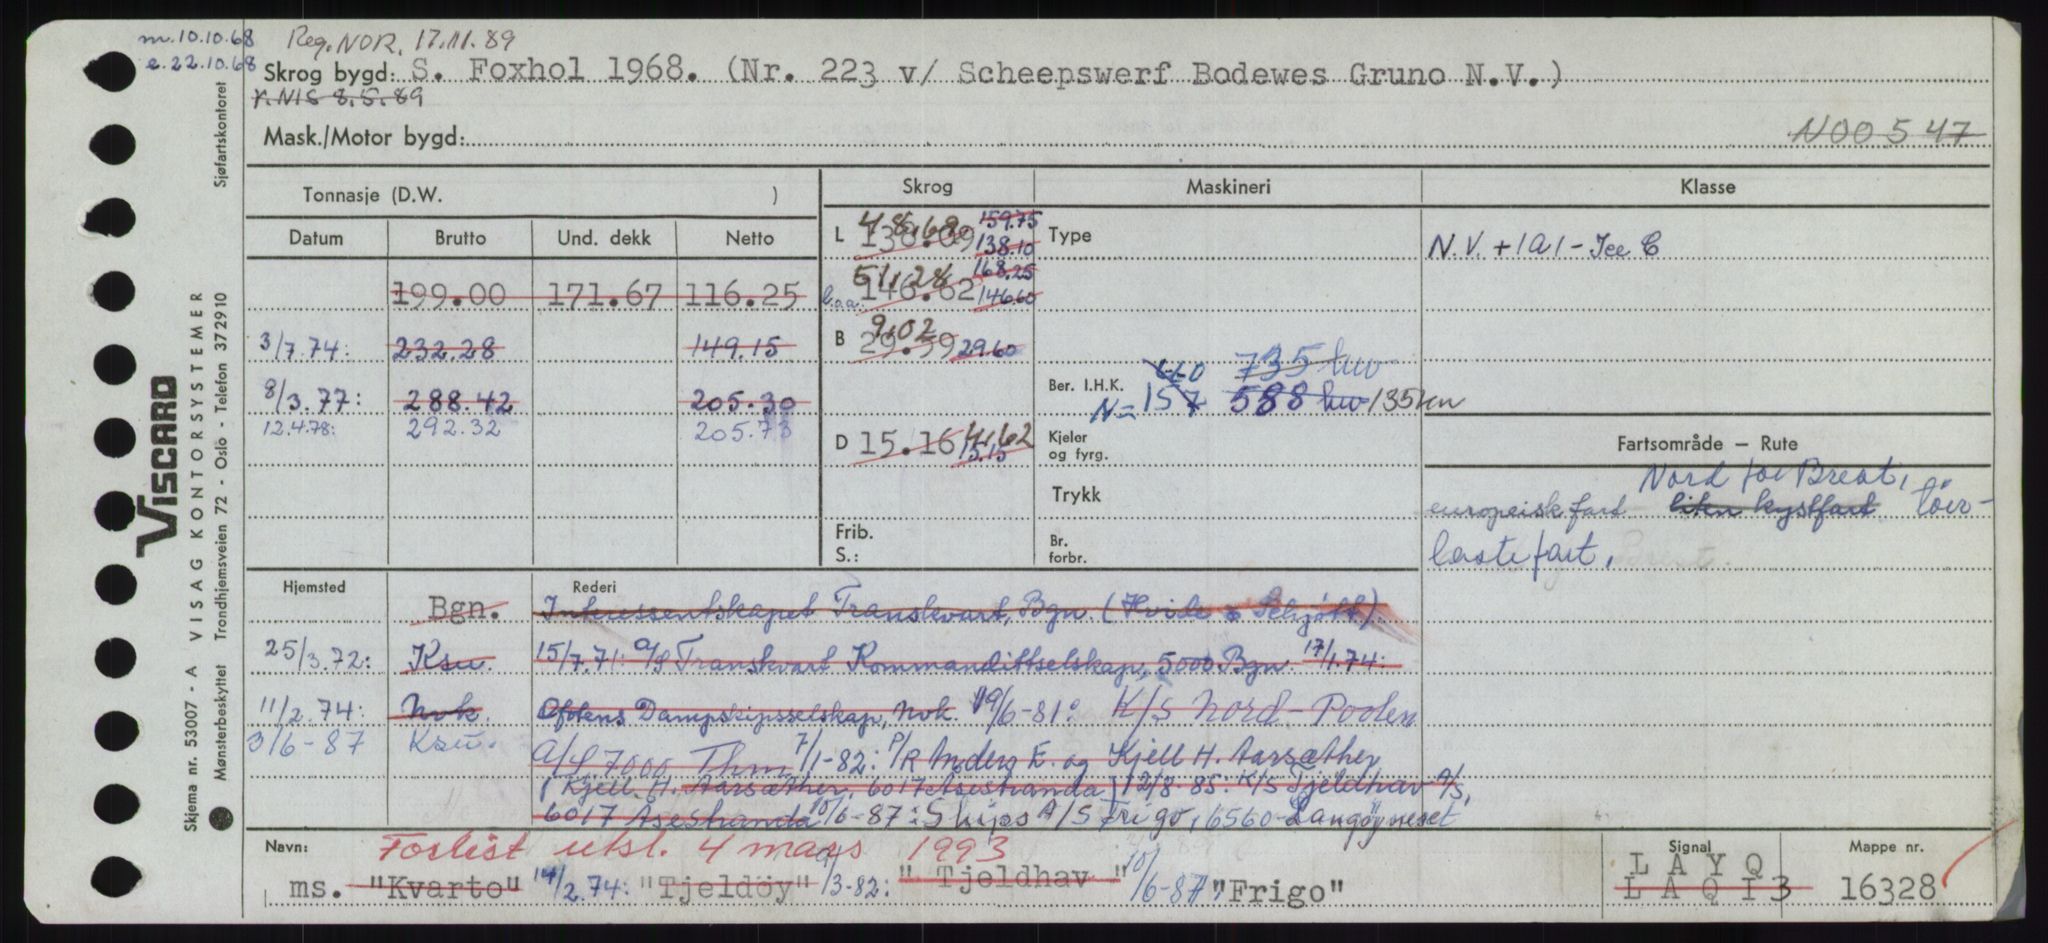 m. 10.10.68 Reg. NOR. 17.11.89
e. 22.10.68 Skrog bygd: S. Foxhol 1968. (Nr. 223 v/ Scheepswerf Bodewes Gruno N.V.)
r. NIS 8.5.89
Mask./Motor bygd: N00547
Tonnasje (D.W. ) Skrog Maskineri Klasse
Datum Brutto Und. dekk Netto
L 138.09 48.68 159.75 138.10 Type N.V. +1A1 - Ice C
199.00 171.67 116.25 l.o.a. 146.62 51.28 168.25 146.60
3/7.74: 232.28 149.15 B 29.59 9.02 29.60
440 735 kw
8/3.77: 288.42 205.30 Ber. I.H.K. N= 157 588 kw 135 kw
12.4.78: 292.32 205.73
D 15.16 4.62 15.15 Kjeler og fyrg. Fartsområde — Rute
Nord for Brest,
Trykk europeisk fart liten kystfart
Frib.
S.: Br. forbr. laste fart,
Hjemsted Rederi
Bgn. Interessentskapet Transkvart, Bgn. (Hvide & Schjøtt).
25/3.72: Ksu. 15/7.71: A/S Transkvart Kommandittselskap, 5000 Bgn. 17/1.74:
11/2.74: Nvk. Ofotens Dampskipsselskap, Nvk. 19/6-81: K/S Nord-Poolen
3/6-87 Ksu. A/S 7000 Thm 7/1-82: P/R Anders E. og Kjell H. Aarsæther
(Kjell H. Aarsæther, 6017 Åsestranda) 12/8-85: K/S Tjeldhav A/S,
6017 Åsestranda 10/6-87: Ships A/S Frigo, 6560 Langøyneset
Navn: Forlist utsl. 4 mars 1993 Signal Mappe nr.
LAYQ
ms. "Kvarto" 14/2.74: "Tjeldöy" /3-82: "Tjeldhav" 10/6-87: "Frigo" LAQI3 16328
VISCARD
Skjema nr. 53007 - A VISAG KONTORSYSTEMER
Mønsterbeskyttet Trondhjemsveien 72 - Oslo - Telefon 372910
Sjøfartskontoret